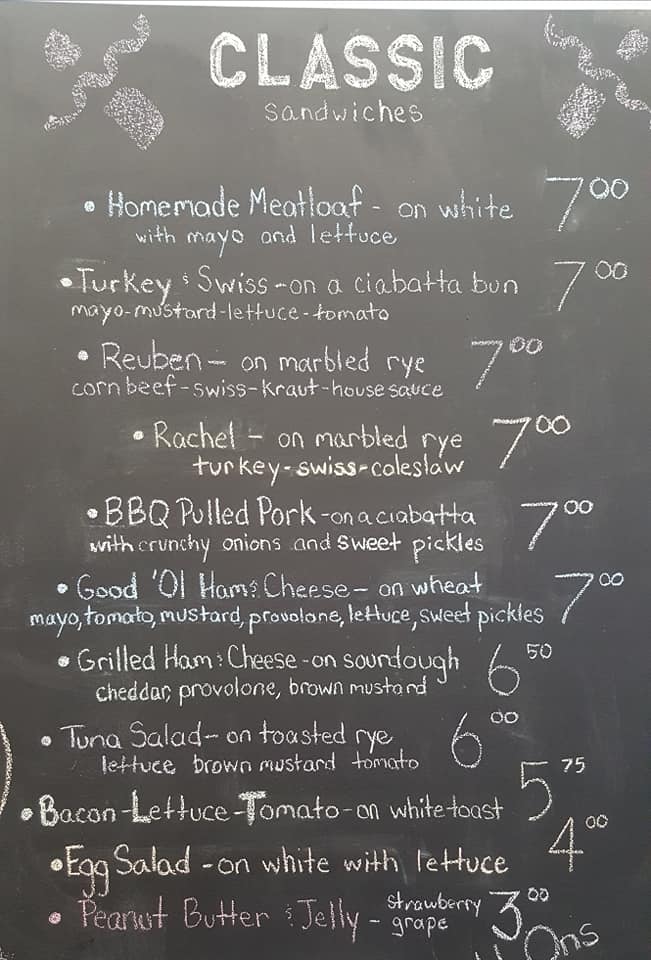 CLASSIC
sandwiches
• Homemade Meatloaf - on white 7.00
with mayo and lettuce
• Turkey & Swiss - on a ciabatta bun 7.00
mayo-mustard-lettuce-tomato
• Reuben - on marbled rye 7.00
corn beef-swiss-kraut-house sauce
• Rachel - on marbled rye 7.00
turkey-swiss-coleslaw
• BBQ Pulled Pork - on a ciabatta 7.00
with crunchy onions and sweet pickles
• Good 'Ol Ham & Cheese - on wheat 7.00
mayo, tomato, mustard, provolone, lettuce, sweet pickles
• Grilled Ham & Cheese - on sourdough 6.50
cheddar, provolone, brown mustard
• Tuna Salad - on toasted rye 6.00
lettuce brown mustard tomato
• Bacon-Lettuce-Tomato-on white toast 5.75
• Egg Salad - on white with lettuce 4.00
• Peanut Butter & Jelly - strawberry 3.00
grape
Ons